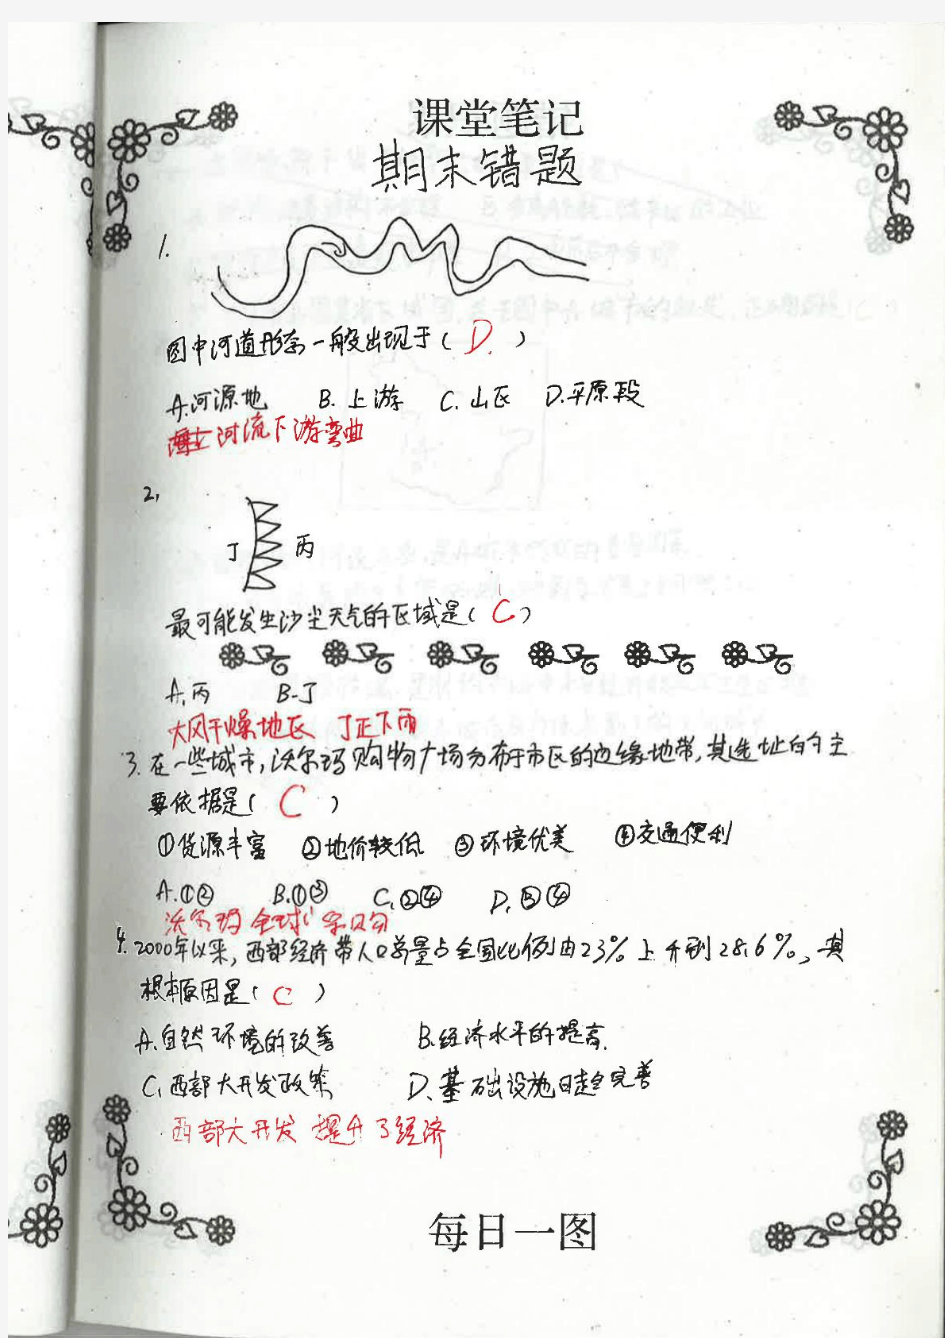 课堂笔记
期末错题
1.
图中河道形态一般出现于( D. )
A.河源地 B.上游 C.山区 D.平原段
河流下游弯曲
2,
丁 丙
最可能发生沙尘天气的区域是( C )
A.丙 B.丁
大风干燥地区 丁正下雨
3.在一些城市,沃尔玛购物广场分布于市区的边缘地带,其选址的主
要依据是( C )
①货源丰富 ②地价较低 ③环境优美 ④交通便利
A.①② B.①③ C.②④ D.③④
沃尔玛全球
4.2000年以来,西部经济带人口总量占全国比例由23%上升到28.6%,其
根本原因是( C )
A.自然环境的改善 B.经济水平的提高.
C.西部大开发政策 D.基础设施日趋完善
西部大开发 提升了经济
每日一图